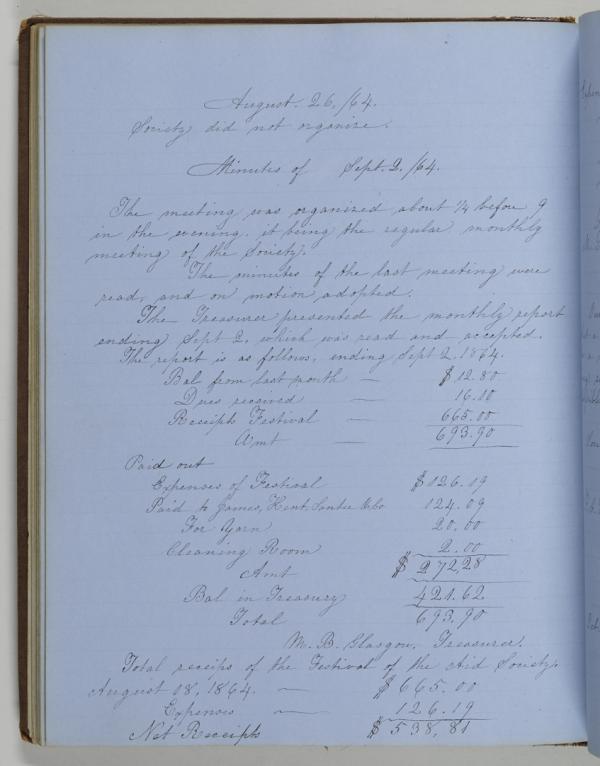 August. 26, /64.
Society did not organize.
Minutes of Sept. 2. /64.
The meeting was organized about ¼ before 9
in the evening. it being the regular monthly
meeting of the Society.
The minutes of the last meeting were
read, and on motion adopted.
The Treasurer presented the monthly report
ending Sept 2. which was read and accepted.
The report is as follows, ending Sept 2. 1864.
Bal from last month — $ 12.80
Dues received — 16.10
Receipts Festival — 665.00
Amt — 693.90
Paid out
Expenses of Festival $ 126.19
Paid to James, Kent, Santee & Co 124.09
For Yarn 20.00
Cleaning Room 2.00
Amt $ 272,28
Bal in Treasury 421.62
Total 693.90
M. B. Glasgow, Treasurer.
Total receipts of the Festival of the Aid Society,
August 08, 1864. — $ 665.00
Expenses — 126.19
Net Receipts $ 538,81